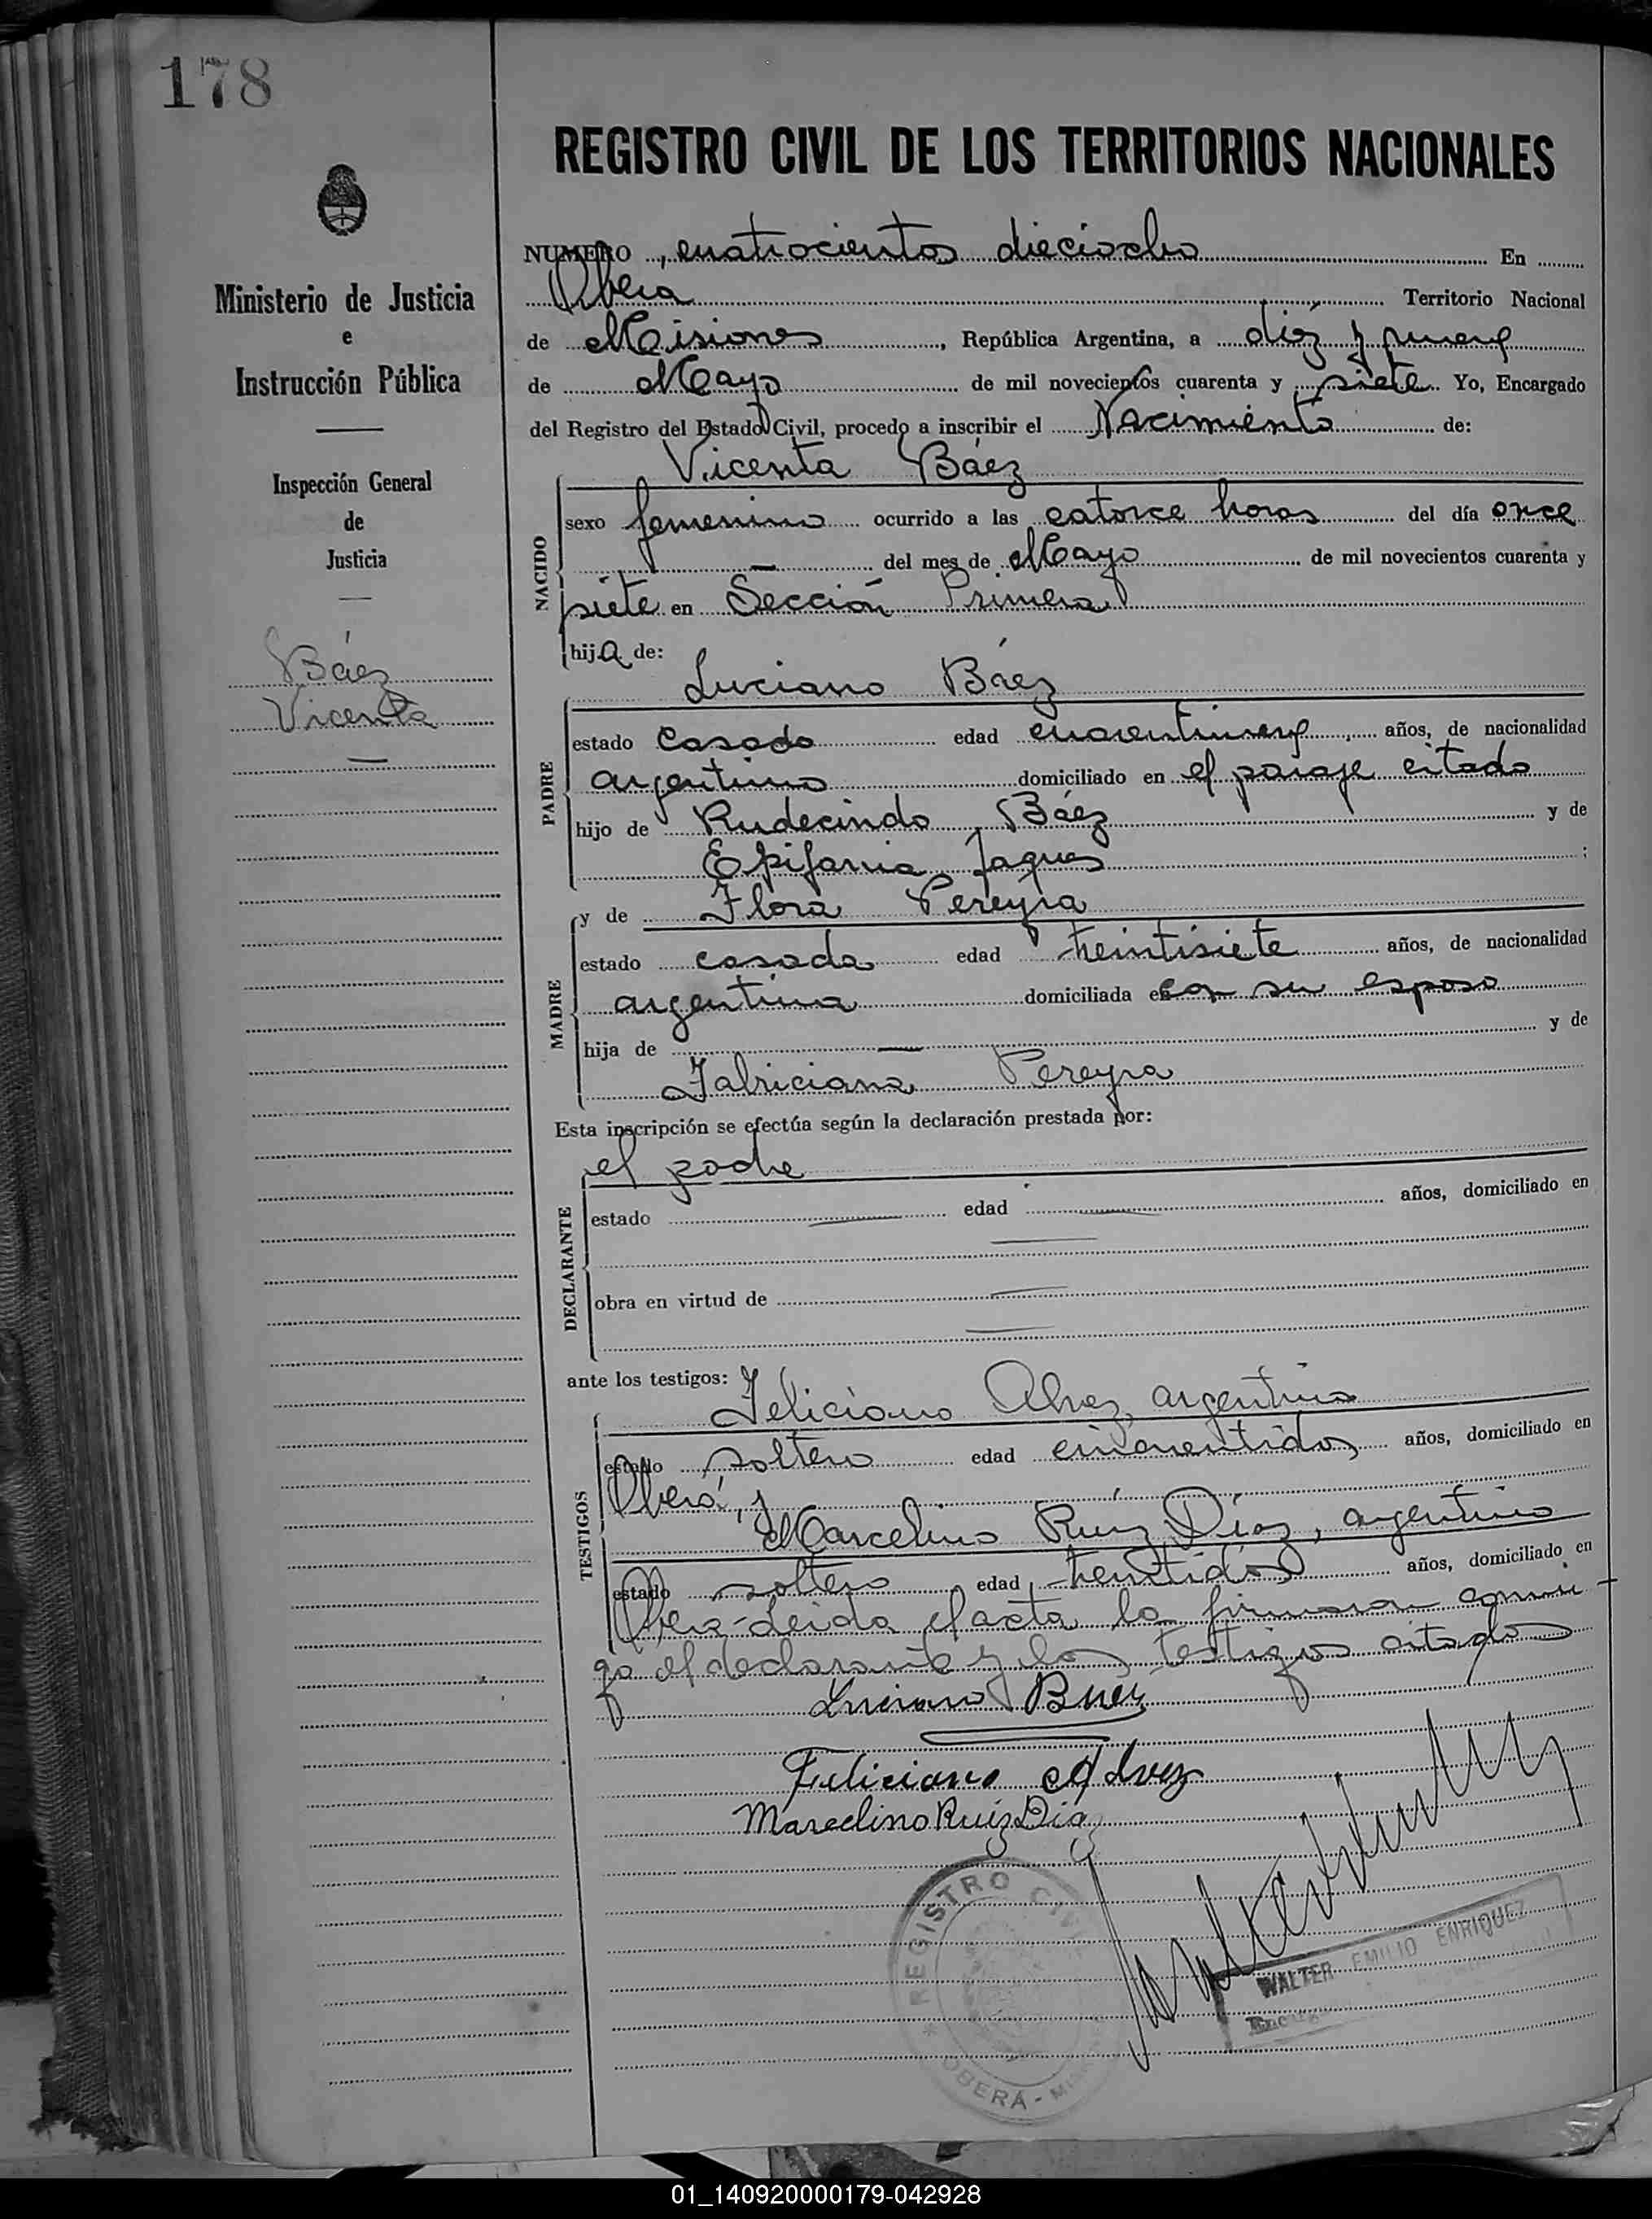 178
REGISTRO CIVIL DE LOS TERRITORIOS NACIONALES
Ministerio de Justicia
e
Instrucción Pública
Inspección General
de
Justicia
Báez
Vicenta
NUMERO cuatrocientos dieciocho En
Oberá Territorio Nacional
de Misiones, República Argentina, a diez y nueve
de Mayo de mil novecientos cuarenta y siete Yo, Encargado
del Registro del Estado Civil, procedo a inscribir el Nacimiento de:
Vicenta Báez
NACIDO
sexo femenino ocurrido a las catorce horas del día once
del mes de Mayo de mil novecientos cuarenta y
siete en Sección Primera
hija de:
Luciano Báez
PADRE
estado casado edad cuarentinueve años, de nacionalidad
argentino domiciliado en el paraje citado
hijo de Rudecindo Báez y de
Epifania Jaques;
y de Flora Pereyra
MADRE
estado casada edad treintisiete años, de nacionalidad
argentina domiciliada en con su esposo
hija de — y de
Fabriciana Pereyra
Esta inscripción se efectúa según la declaración prestada por:
el padre
DECLARANTE
estado — edad — años, domiciliado en
obra en virtud de —
ante los testigos: Feliciano Alvez, argentino
TESTIGOS
estado soltero edad cincuentidos años, domiciliado en
Oberá, y
Marcelino Ruiz Díaz, argentino
estado soltero edad treintidós años, domiciliado en
Oberá-leida el acta la firmaron conmi-
go el declarante y los testigos citados
Luciano Baez
Feliciano Alvez
Marcelino Ruiz Diaz
REGISTRO CIVIL
OBERÁ -
WALTER EMILIO ENRIQUEZ
01_140920000179-042928